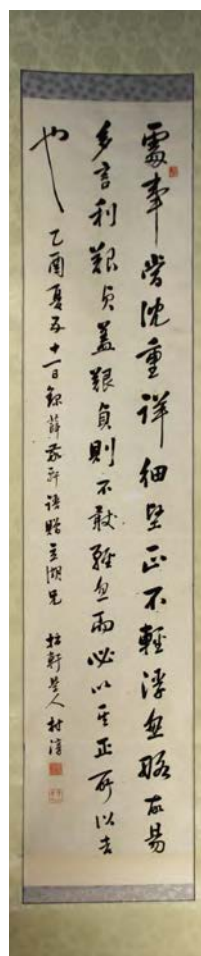 處事當沈重詳細堅正不輕浮忽略故易
多言利艱貞蓋艱貞則不敢輕忽而必以其正所以吉
也 乙酉夏五十一日錄薛敬軒語贈 湖兄 軒 人村淳